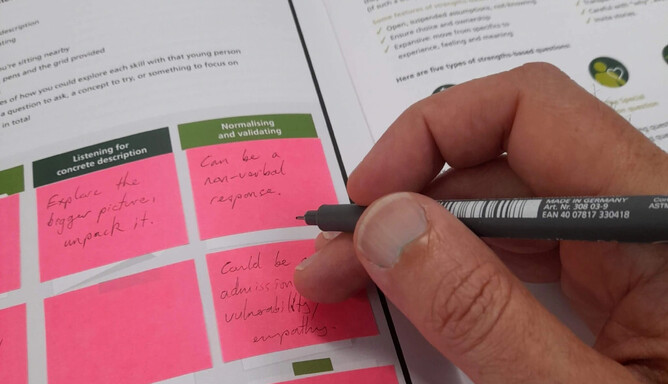 e description
ating
you're sitting nearby
pens and the grid provided
es of how you could explore each skill with that young person
a question to ask, a concept to try, or something to focus on
in total
Listening for
concrete description
Normalising
and validating
Explore the
bigger picture,
unpack it.
Can be a
non-verbal
response.
Could be
admission
vulnerability/
empathy.
Some features of strengths-based
Open, suspended assumptions, not-knowing
Ensure choice and ownership
Expansive: move from specifics to
experience, feeling and meaning
Careful with "why"
invite stories.
Here are five types of strengths-based questions:
Special
MADE IN GERMANY
Art. Nr. 308 03-9
EAN 40 07817 330418
ASTM